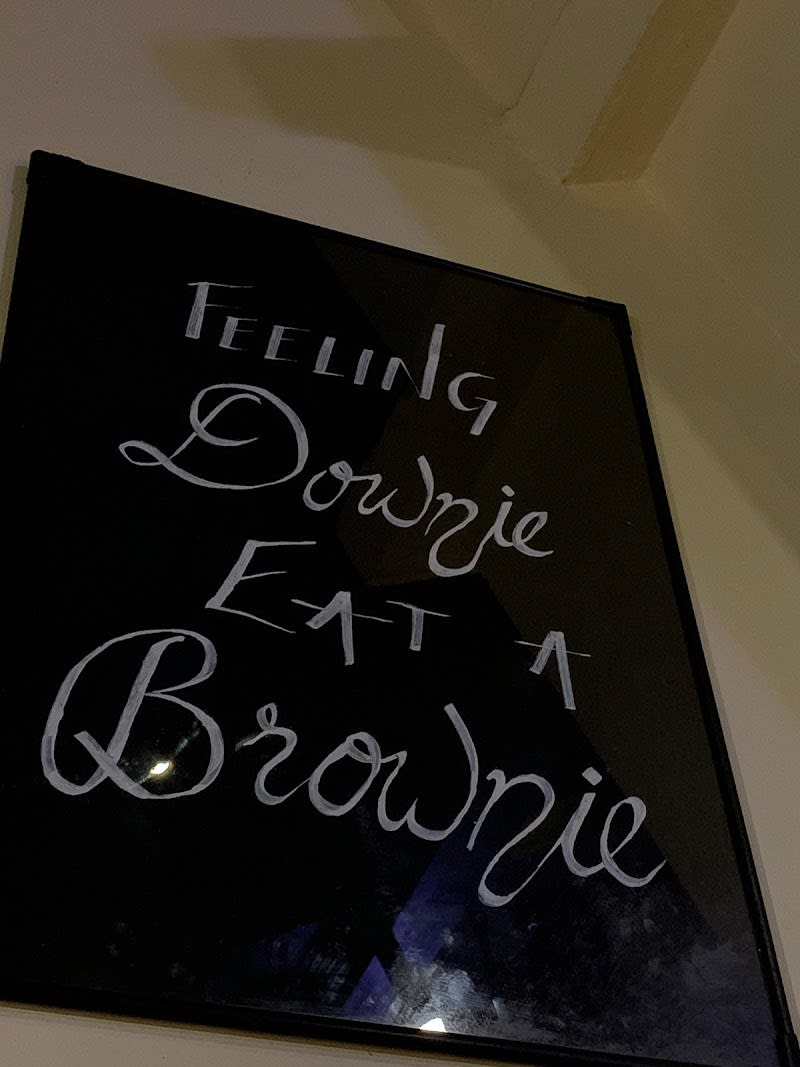 FEELING
Downie
EAT A
Brownie